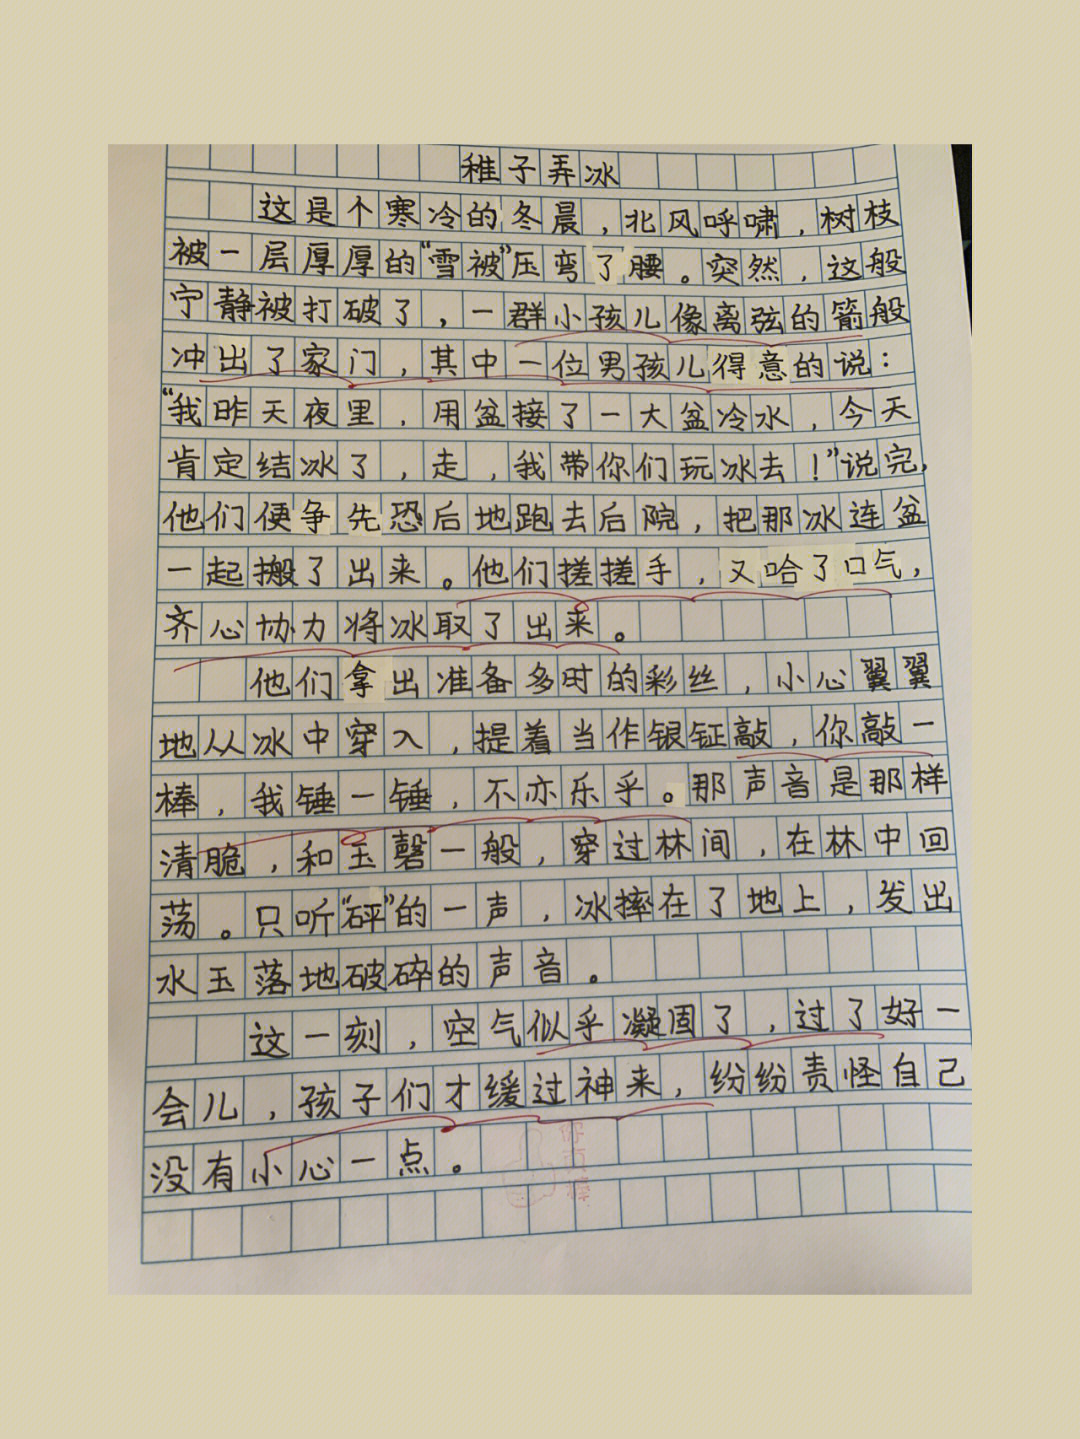 稚子弄冰
这是个寒冷的冬晨，北风呼啸，树枝
被一层厚厚的“雪被”压弯了腰。突然，这般
宁静被打破了，一群小孩儿像离弦的箭般
冲出了家门，其中一位男孩儿得意的说：
“我昨天夜里，用盆接了一大盆冷水，今天
肯定结冰了，走，我带你们玩冰去！”说完，
他们便争先恐后地跑去后院，把那冰连盆
一起搬了出来。他们搓搓手，又哈了口气，
齐心协力将冰取了出来。
他们拿出准备多时的彩丝，小心翼翼
地从冰中穿入，提着当作银钲敲，你敲一
棒，我锤一锤，不亦乐乎。那声音是那样
清脆，和玉磬一般，穿过林间，在林中回
荡。只听“砰”的一声，冰摔在了地上，发出
水玉落地破碎的声音。
这一刻，空气似乎凝固了，过了好一
会儿，孩子们才缓过神来，纷纷责怪自己
没有小心一点。
你真棒